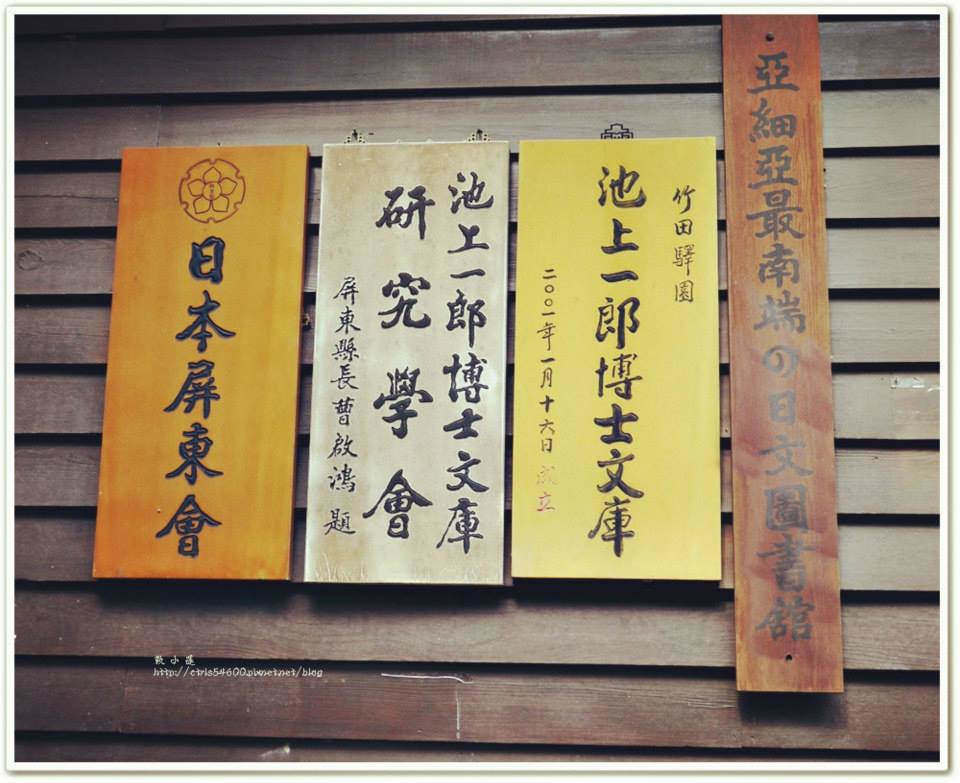 亞細亞最南端の日文圖書館
竹田驛園
池上一郎博士文庫
二〇〇一年一月十六日成立
池上一郎博士文庫
研究學會
屏東縣長曹啟鴻題
日本屏東會
http://ctris54600.pixnet.net/blog